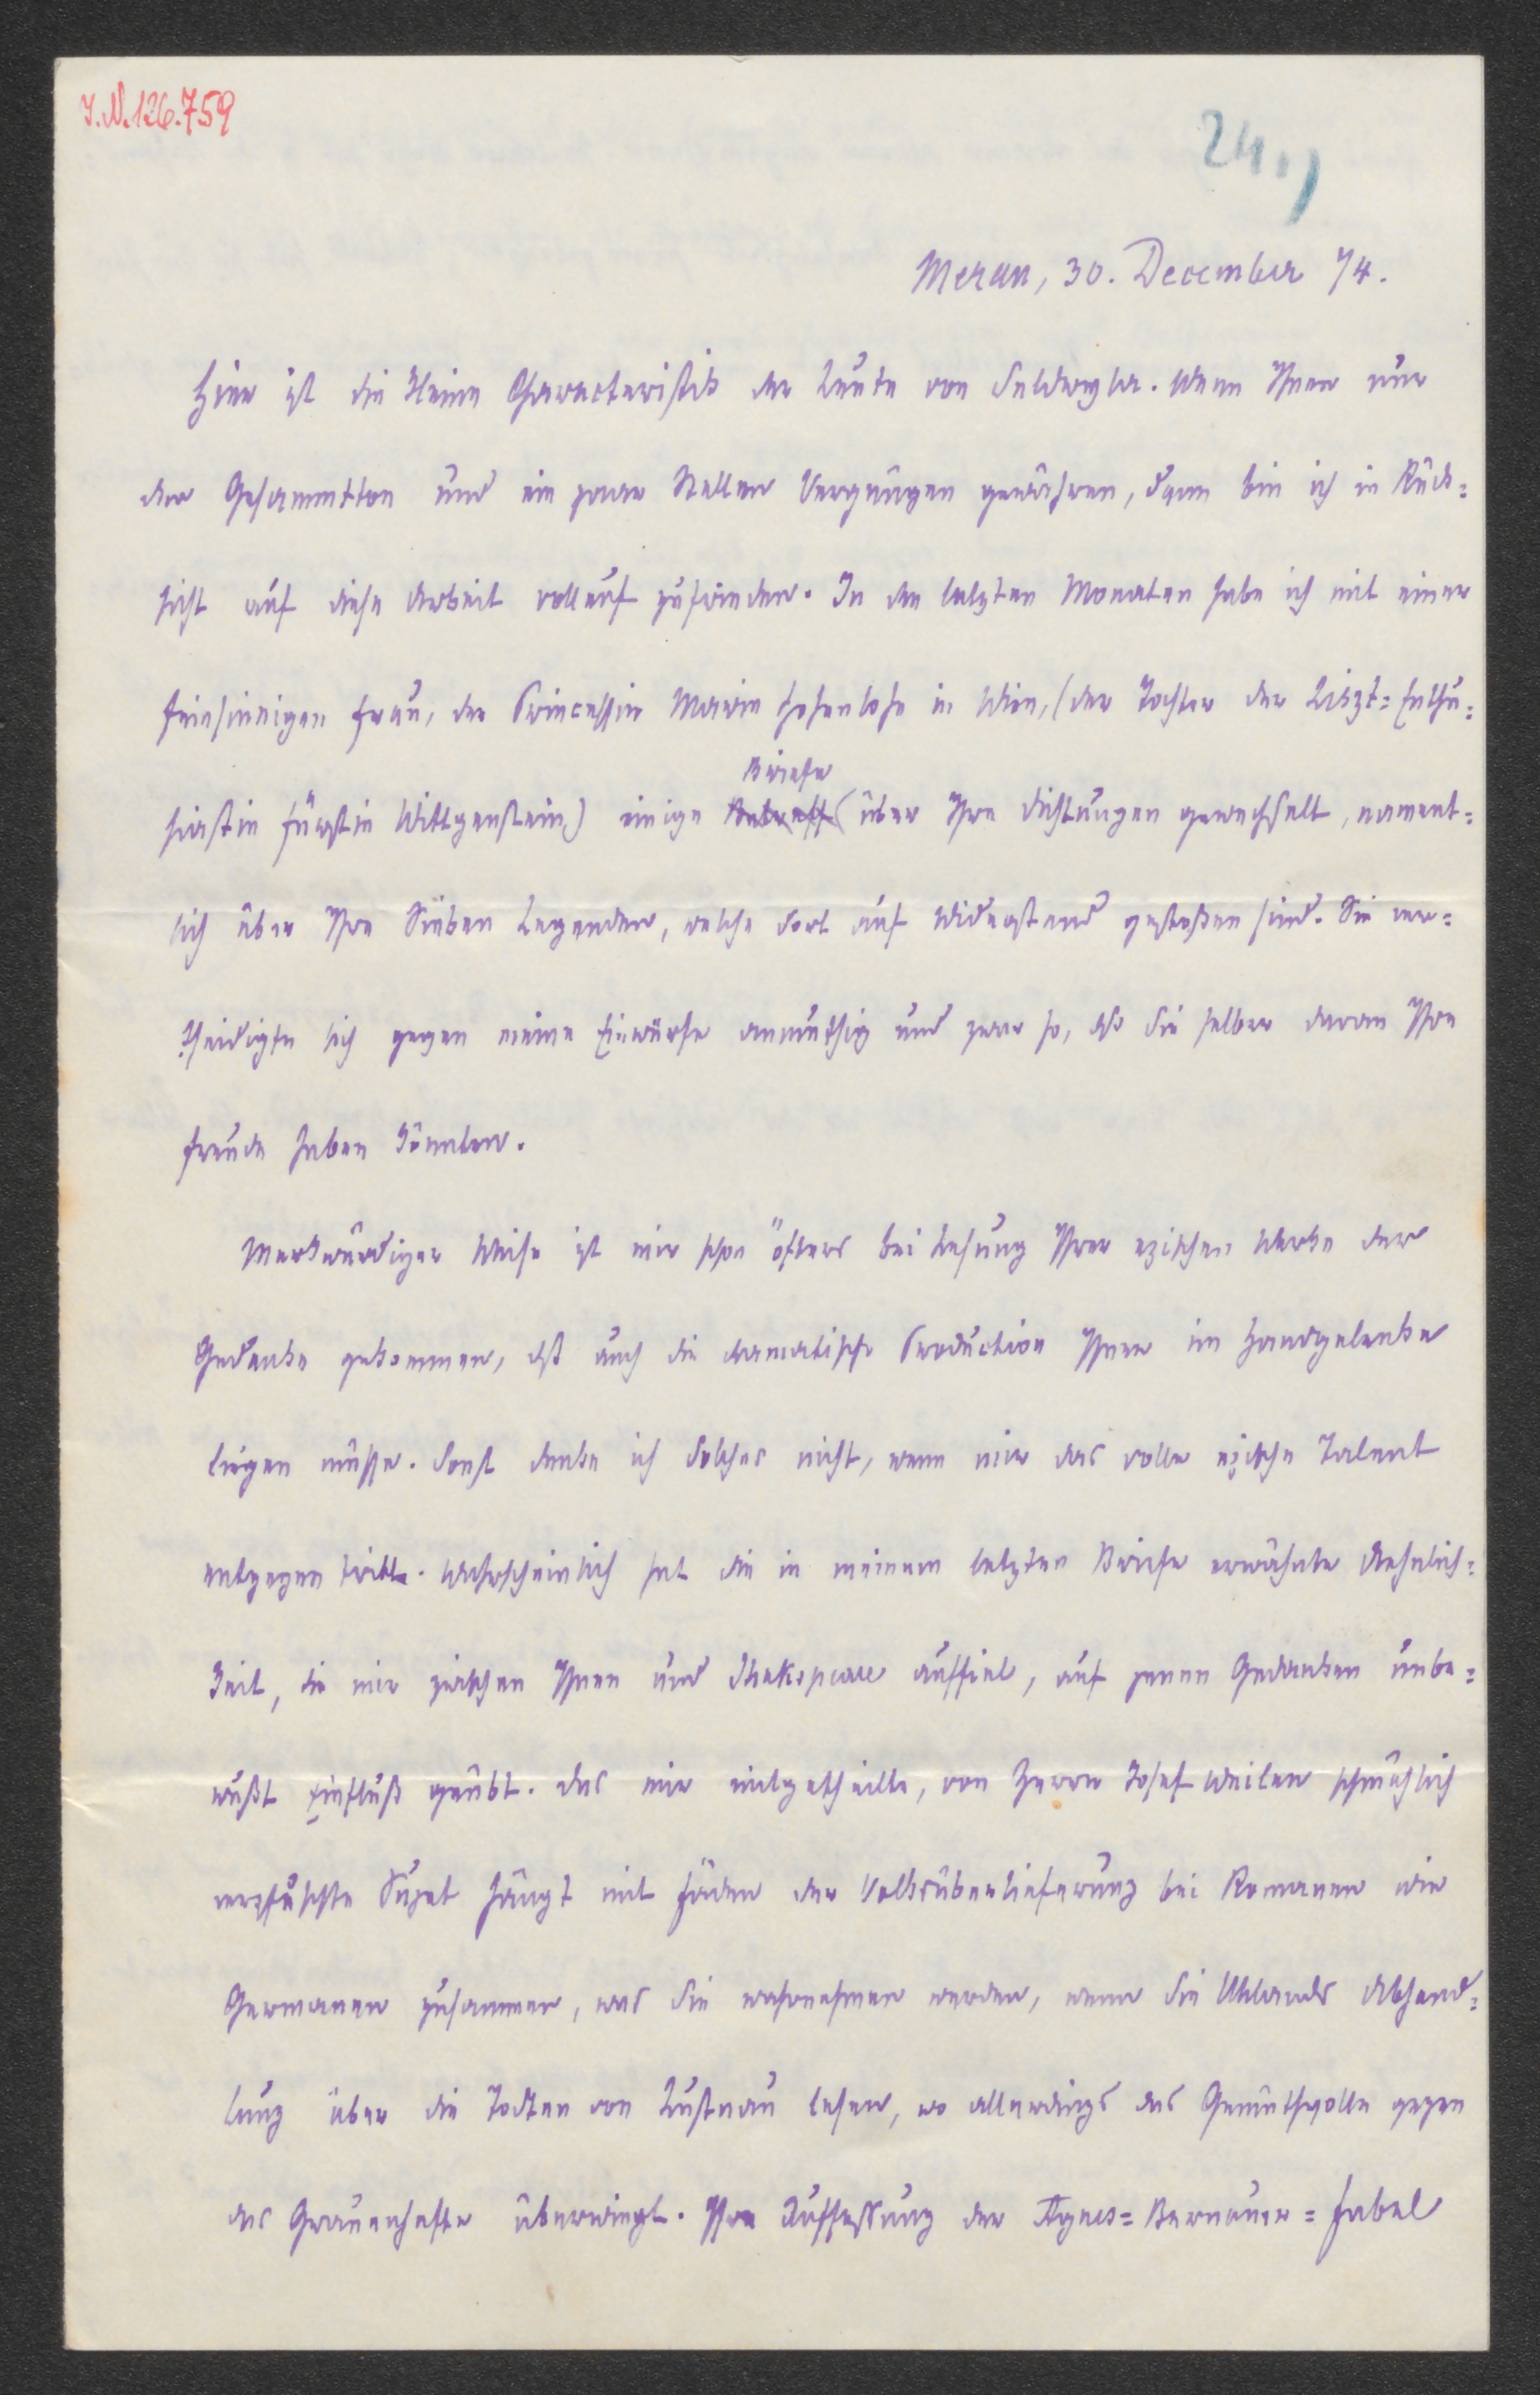 I.N. 126.759
24.)
Meran, 30. December 74.
Hier ist die kleine Characteristik der Leute von Seldwyla. Wenn Ihnen nur
der Gesammtton und ein paar Stellen Vergnügen gewähren, dann bin ich in Rück=
sicht auf diese Arbeit vollauf zufrieden. In den letzten Monaten habe ich mit einer
feinsinnigen Frau, der Princessin Marie Hohenlohe in Wien, (der Tochter der Liszt=Enthu=
Briefe
siastin Fürstin Wittgenstein) einige über Ihre Dichtungen gewechselt, nament=
lich über Ihre Sieben Legenden, welche dort auf Widerstand gestoßen sind. Sie ver=
theidigte sich gegen meine Einwürfe anmuthig und zwar so, dß Sie selber daran Ihre
Freude haben könnten.
Merkwürdiger Weise ist mir schon öfters bei Lesung Ihrer epischen Werke der
Gedanke gekommen, dß auch die dramatische Production Ihnen im Handgelenke
liegen müsse. Sonst denke ich Solches nicht, wenn mir das volle epische Talent
entgegen tritt. Wahrscheinlich hat die in meinem letzten Briefe erwähnte Aehnlich=
keit, die mir zwischen Ihnen und Shakspeare auffiel, auf jenen Gedanken unbe=
wußt Einfluß geübt. Das mir mitgetheilte, von Herrn Josef Weilen schmählich
verpfuschte Sujet hängt mit Fäden der Volksüberlieferung bei Romanen wie
Germanen zusammen, was Sie wahrnehmen werden, wenn Sie Uhlands Abhand=
lung über die Todten von Lustnau lesen, wo allerdings das Gemüthvolle gegen
das Grauenhafte überwiegt. Ihre Auffassung der Agnes=Bernauer=Fabel